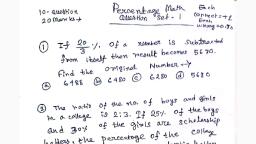 10- question
20 Marks +
Percentage Math
Question Set - 1
Each
correct = +2
Each
wrong
① If 20/3 %. Of a number is subtracted
from itself then result becomes 5670.
Find the original Number →
a b c d
6488 6480 6280 5680
② The ratio of the no. of boys and girls
in a college is 2:3. If 25% of the boys
and 30% of the girls are scholarship
holders, the percentage of the college